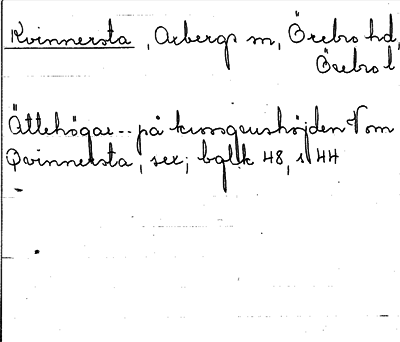 Kvinnersta, Axbergs sn, Örebro hd,
Örebro l
Ättehögar -- på krossgrushöjden V om
Qvinnersta, se; bglk 48, s 44